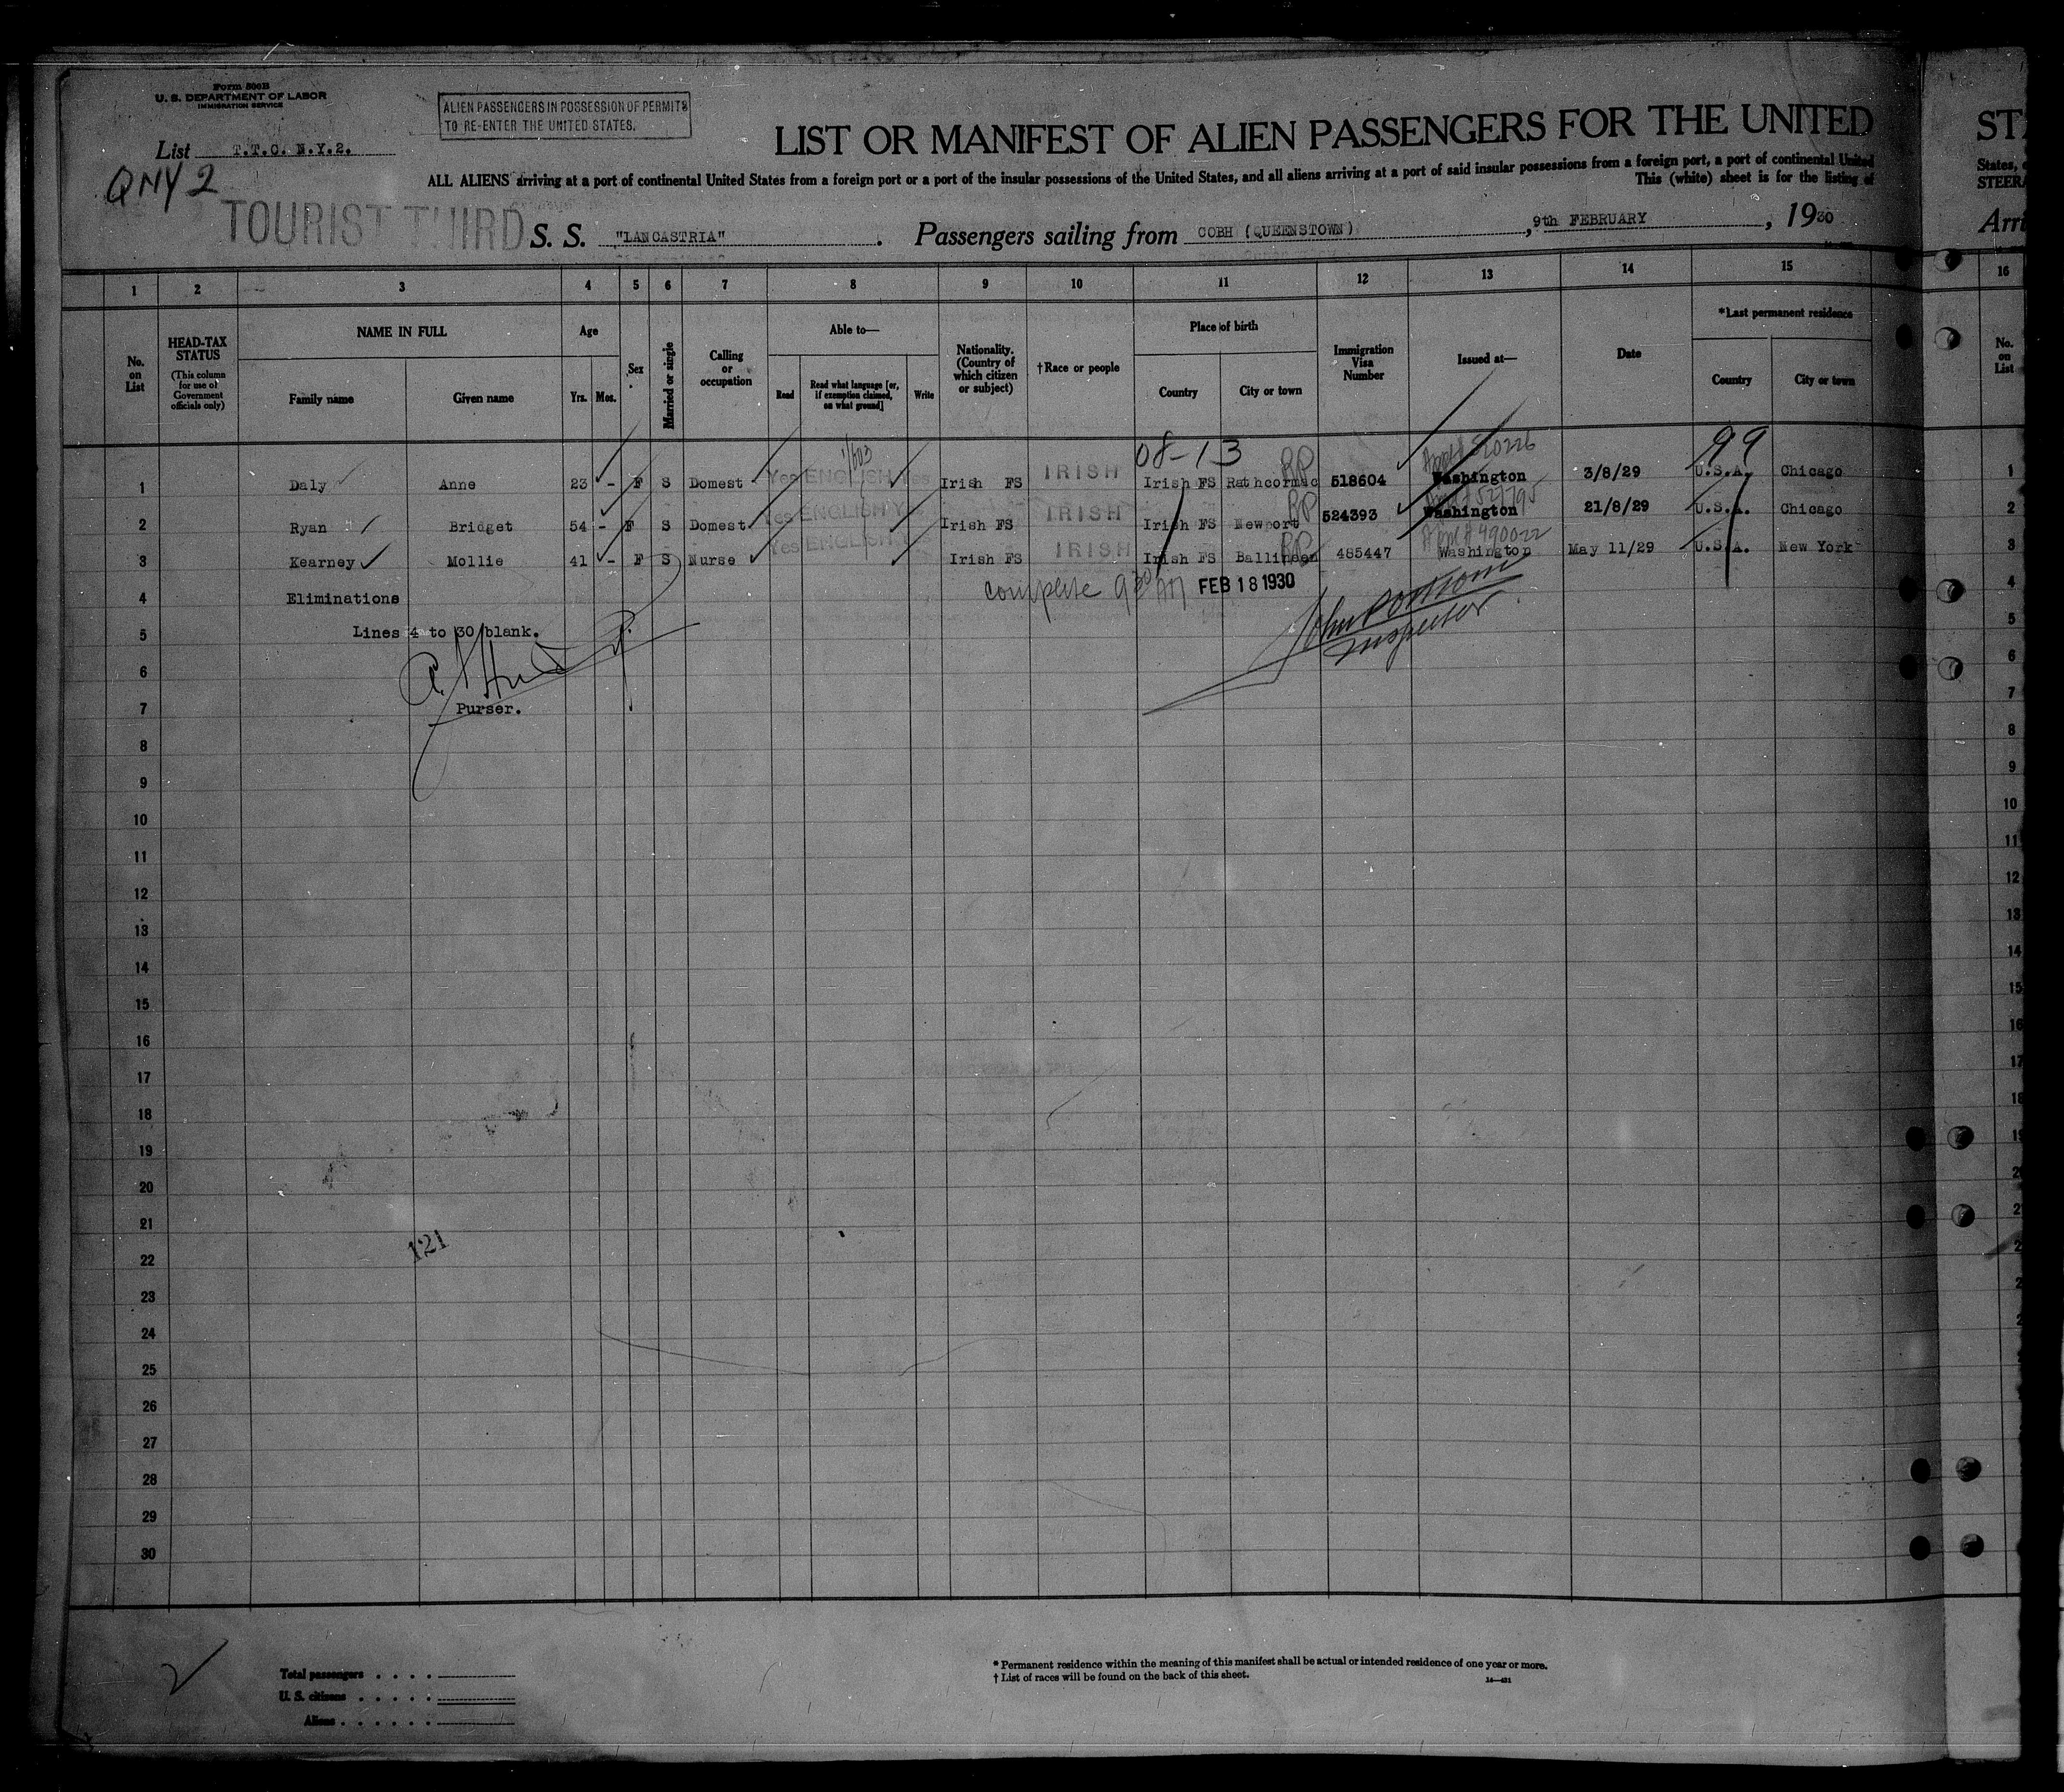 Form 500B
U. S. DEPARTMENT OF LABOR
IMMIGRATION SERVICE
ALIEN PASSENGERS IN POSSESSION OF PERMITS
TO RE-ENTER THE UNITED STATES.
List T.T.C. N.Y.2.
QNY 2
LIST OR MANIFEST OF ALIEN PASSENGERS FOR THE UNITED
ALL ALIENS arriving at a port of continental United States from a foreign port or a port of the insular possessions of the United States, and all aliens arriving at a port of said insular possessions from a foreign port, a port of continental United
This (white) sheet is for the listing of
TOURIST THIRD
S. S. "LANCASTRIA". Passengers sailing from COBH (QUEENSTOWN), 9th FEBRUARY, 1930
States,
STEER
Arri
1 2 3 4 5 6 7 8 9 10 11 12 13 14 15 16
No. on List
HEAD-TAX STATUS (This column for use of Government officials only)
NAME IN FULL
Family name Given name
Age
Yrs. Mos.
Sex
Married or single
Calling or occupation
Able to—
Read Read what language [or, if exemption claimed, on what ground] Write
Nationality. (Country of which citizen or subject)
†Race or people
Place of birth
Country City or town
Immigration Visa Number
Issued at—
Date
*Last permanent residence
Country City or town
No. on List
08-13 99
1 Daly Anne 23 - F S Domest Yes ENGLISH Yes Irish FS IRISH Irish FS Rathcormac 518604 Washington 3/8/29 U.S.A. Chicago 1
2 Ryan Bridget 54 - F S Domest Yes ENGLISH Yes Irish FS IRISH Irish FS Newport 524393 Washington 21/8/29 U.S.A. Chicago 2
3 Kearney Mollie 41 - F S Nurse Yes ENGLISH Yes Irish FS IRISH Irish FS Ballineen 485447 Washington May 11/29 U.S.A. New York 3
complete 9 30 AM FEB 18 1930
4 Eliminations 4
5 Lines 4 to 30 blank. 5
Inspector
6 6
7 Purser. 7
8 8
9 9
10 10
11 11
12 12
13 13
14 14
15 15
16 16
17 17
18 18
19 19
20
21
121
22
23
24
25
26
27
28
29
30
Total passengers . . . .
U. S. citizens . . . . .
Aliens . . . . . .
* Permanent residence within the meaning of this manifest shall be actual or intended residence of one year or more.
† List of races will be found on the back of this sheet.